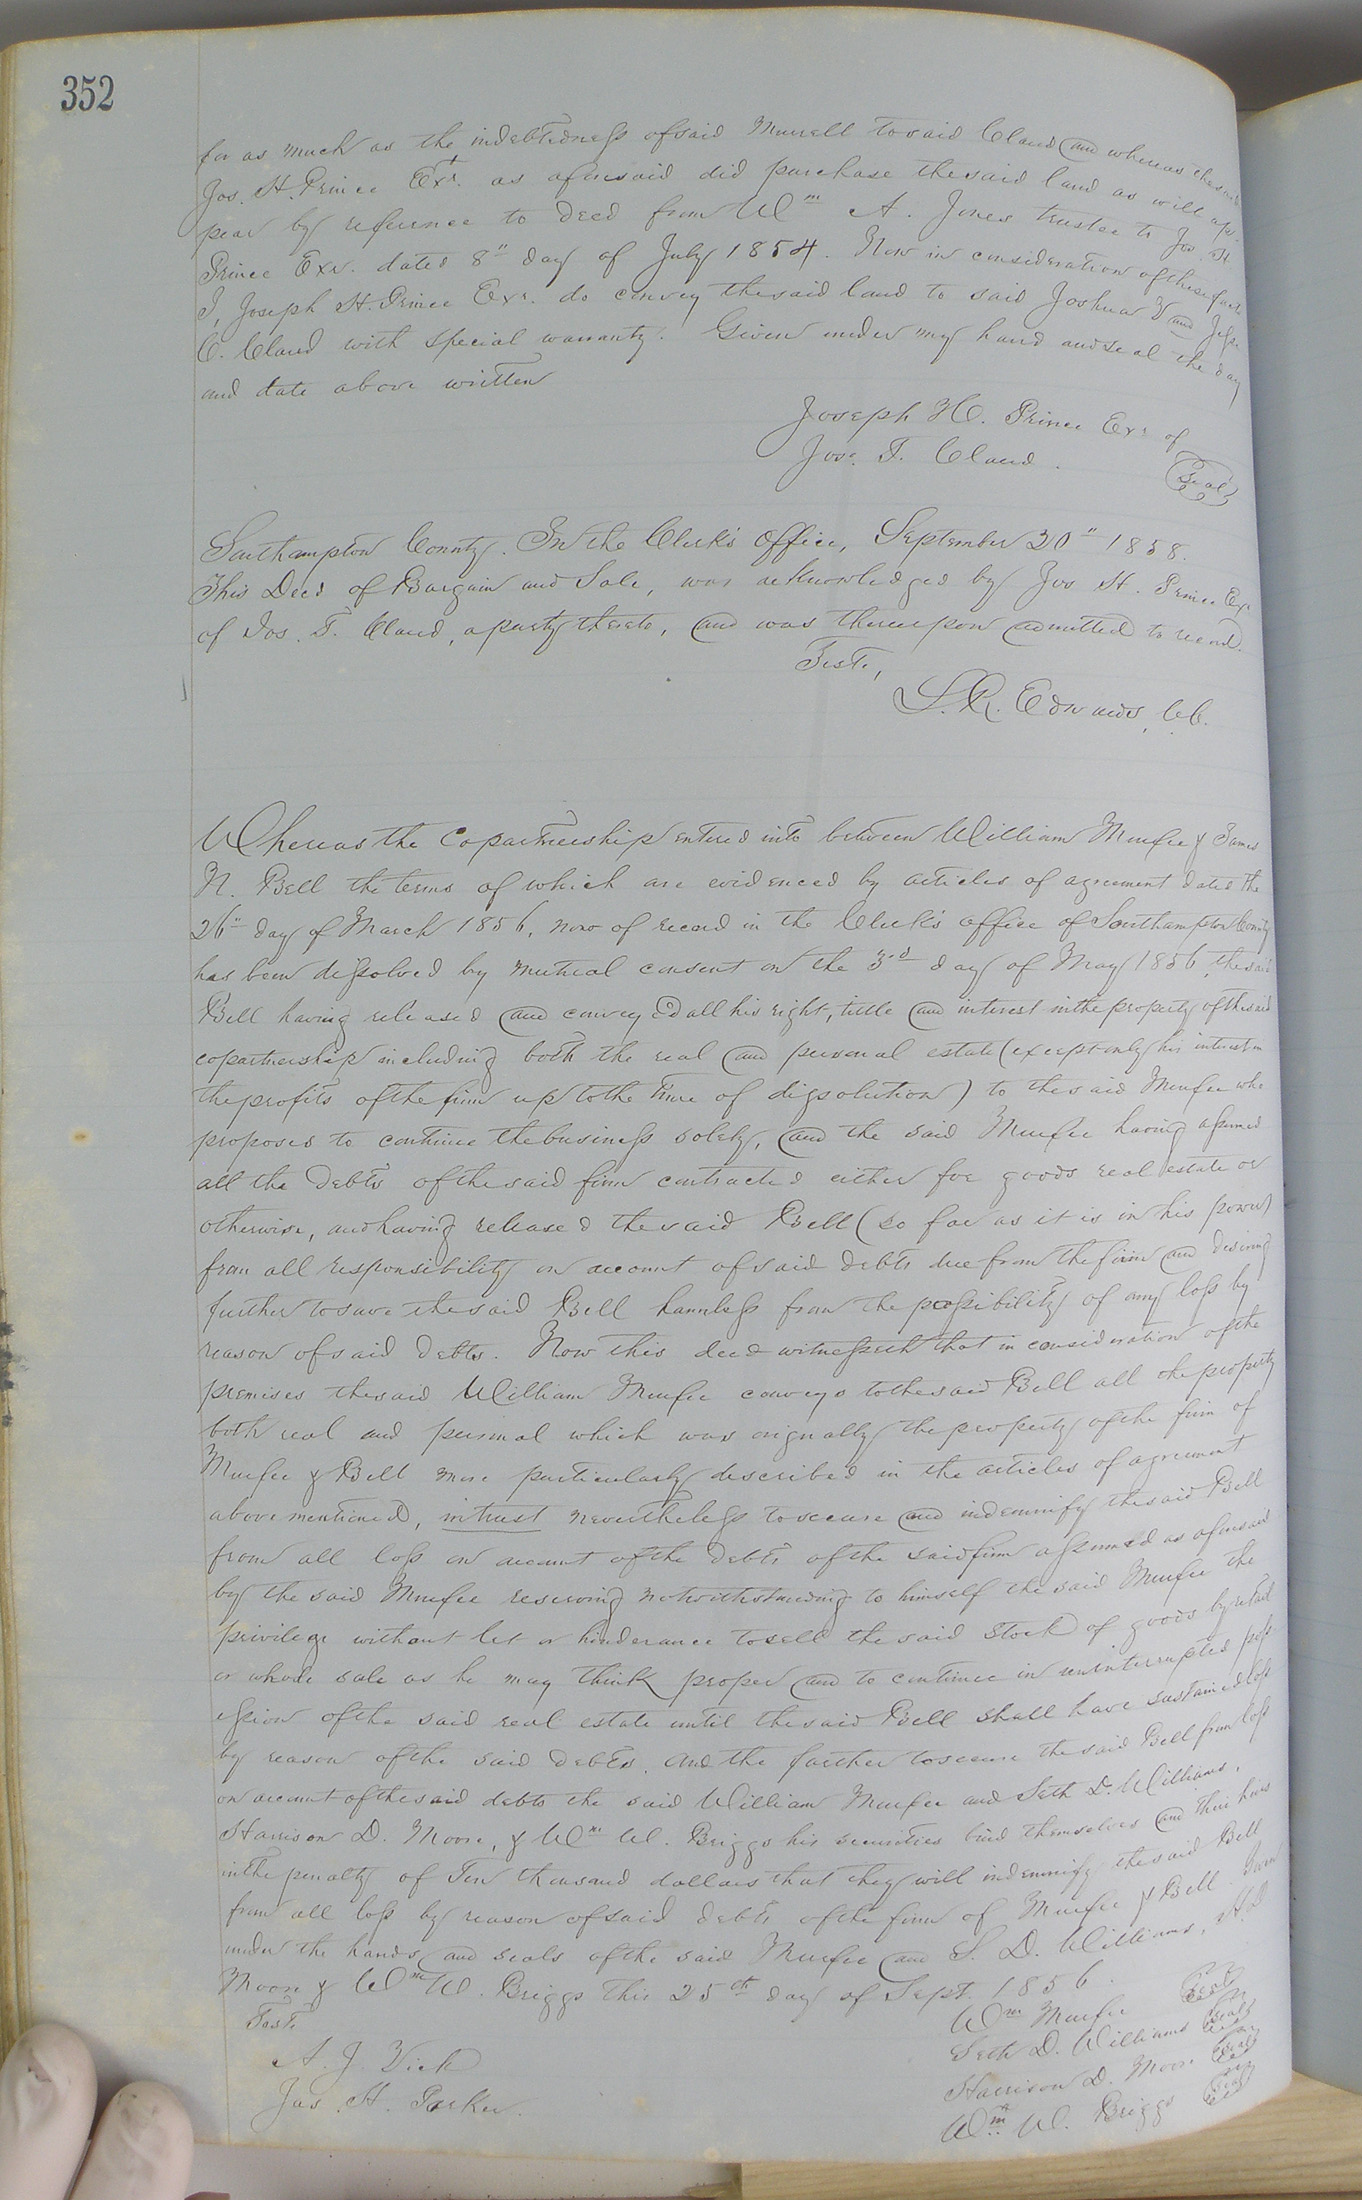 352
for as much as the indebtedness of said Murrell to said Claud and whereas the said
Jos. H. Prince Exr. as aforesaid did purchase the said land as will ap-
pear by reference to deed from Wm A. Jones trustee to Jos. H
Prince Exr. dated 8" day of July 1854. Now in consideration of these facts
I, Joseph H. Prince Exr. do convey the said land to said Joshua and Jesse
C. Claud with special warranty. Given under my hand and seal the day
and date above written
Joseph H. Prince Exr of
Jos. T. Claud.
Seal
Southampton County. In the Clerk's Office, September 30" 1858.
This Deed of Bargain and Sale, was acknowledged by Jos H. Prince Exr
of Jos. T. Claud, a party thereto, and was thereupon admitted to record.
Test.,
L. R. Edwards, C.C.
Whereas the Copartnership entered into between William Murfee & James
N. Bell the terms of which are evidenced by articles of agreement dated the
26" day of March 1856, now of record in the Clerk's office of Southampton County
has been dissolved by mutual consent on the 3rd day of May 1856, the said
Bell having released and conveyed all his right, title and interest in the property of the said
copartnership including both the real and personal estate (except only his interest in
the profits of the firm up to the time of dissolution) to the said Murfee who
proposes to continue the business solely, and the said Murfee having assumed
all the debts of the said firm contracted either for goods real estate or
otherwise, and having released the said Bell (so far as it is in his power)
from all responsibility on account of said debts due from the firm and desiring
further to save the said Bell harmless from the possibility of any loss by
reason of said debts. Now this deed witnesseth that in consideration of the
premises the said William Murfee conveys to the said Bell all the property
both real and personal which was orignally the property of the firm of
Murfee & Bell more particularly described in the articles of agreement
above mentioned, in trust nevertheless to secure and indemnify the said Bell
from all loss on account of the debts of the said firm assumed as aforesaid
by the said Murfee reserving notwithstanding to himself the said Murfee the
privilege without let or hinderance to sell the said stock of goods by retail
or whole sale as he may think proper and to continue in uninterrupted poss-
ession of the said real estate until the said Bell shall have sustained loss
by reason of the said debts. And the further to secure the said Bell from loss
on account of the said debts the said William Murfee and Seth D. Williams,
Harrison D. Moore, & Wm W. Briggs his securities bind themselves and their heirs
in the penalty of Ten thousand dollars that they will indemnify the said Bell
from all loss by reason of said debts of the firm of Murfee & Bell. Given
under the hands and seals of the said Murfee and S. D. Williams, H. D.
Moore & Wm W. Briggs this 25th day of Sept. 1856.
Test.
Wm Murfee Seal
Seth D. Williams Seal
A. J. Vick
Harrison D. Moore Seal
Jas. H. Parker.
Wm W. Briggs Seal